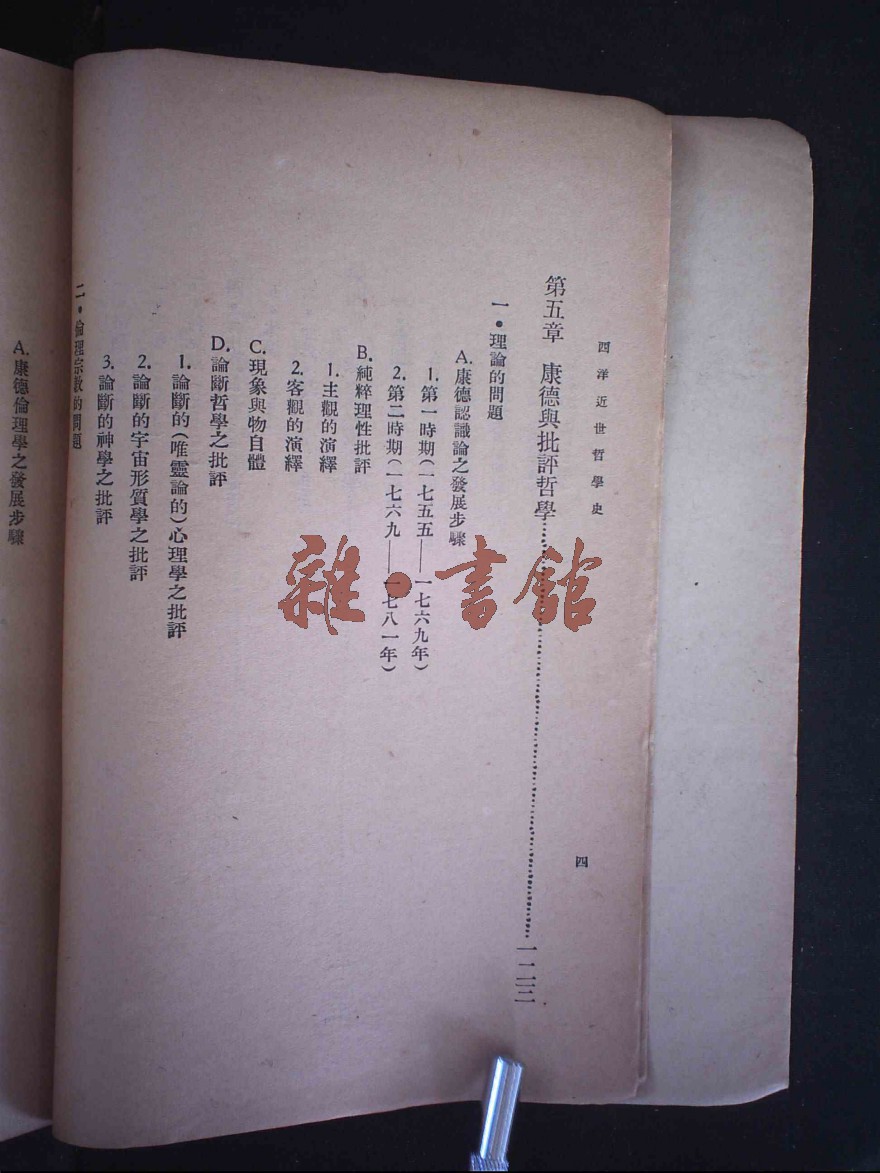 西洋近世哲學史
四
第五章 康德與批評哲學
一•理論的問題
A.康德認識論之發展步驟
1.第一時期(一七五五—一七六九年)
2.第二時期(一七六九—一七八一年)
B.純粹理性批評
1.主觀的演繹
2.客觀的演繹
C.現象與物自體
D.論斷哲學之批評
1.論斷的(唯靈論的)心理學之批評
2.論斷的宇宙形質學之批評
3.論斷的神學之批評
二•倫理宗教的問題
A.康德倫理學之發展步驟
雜•書館